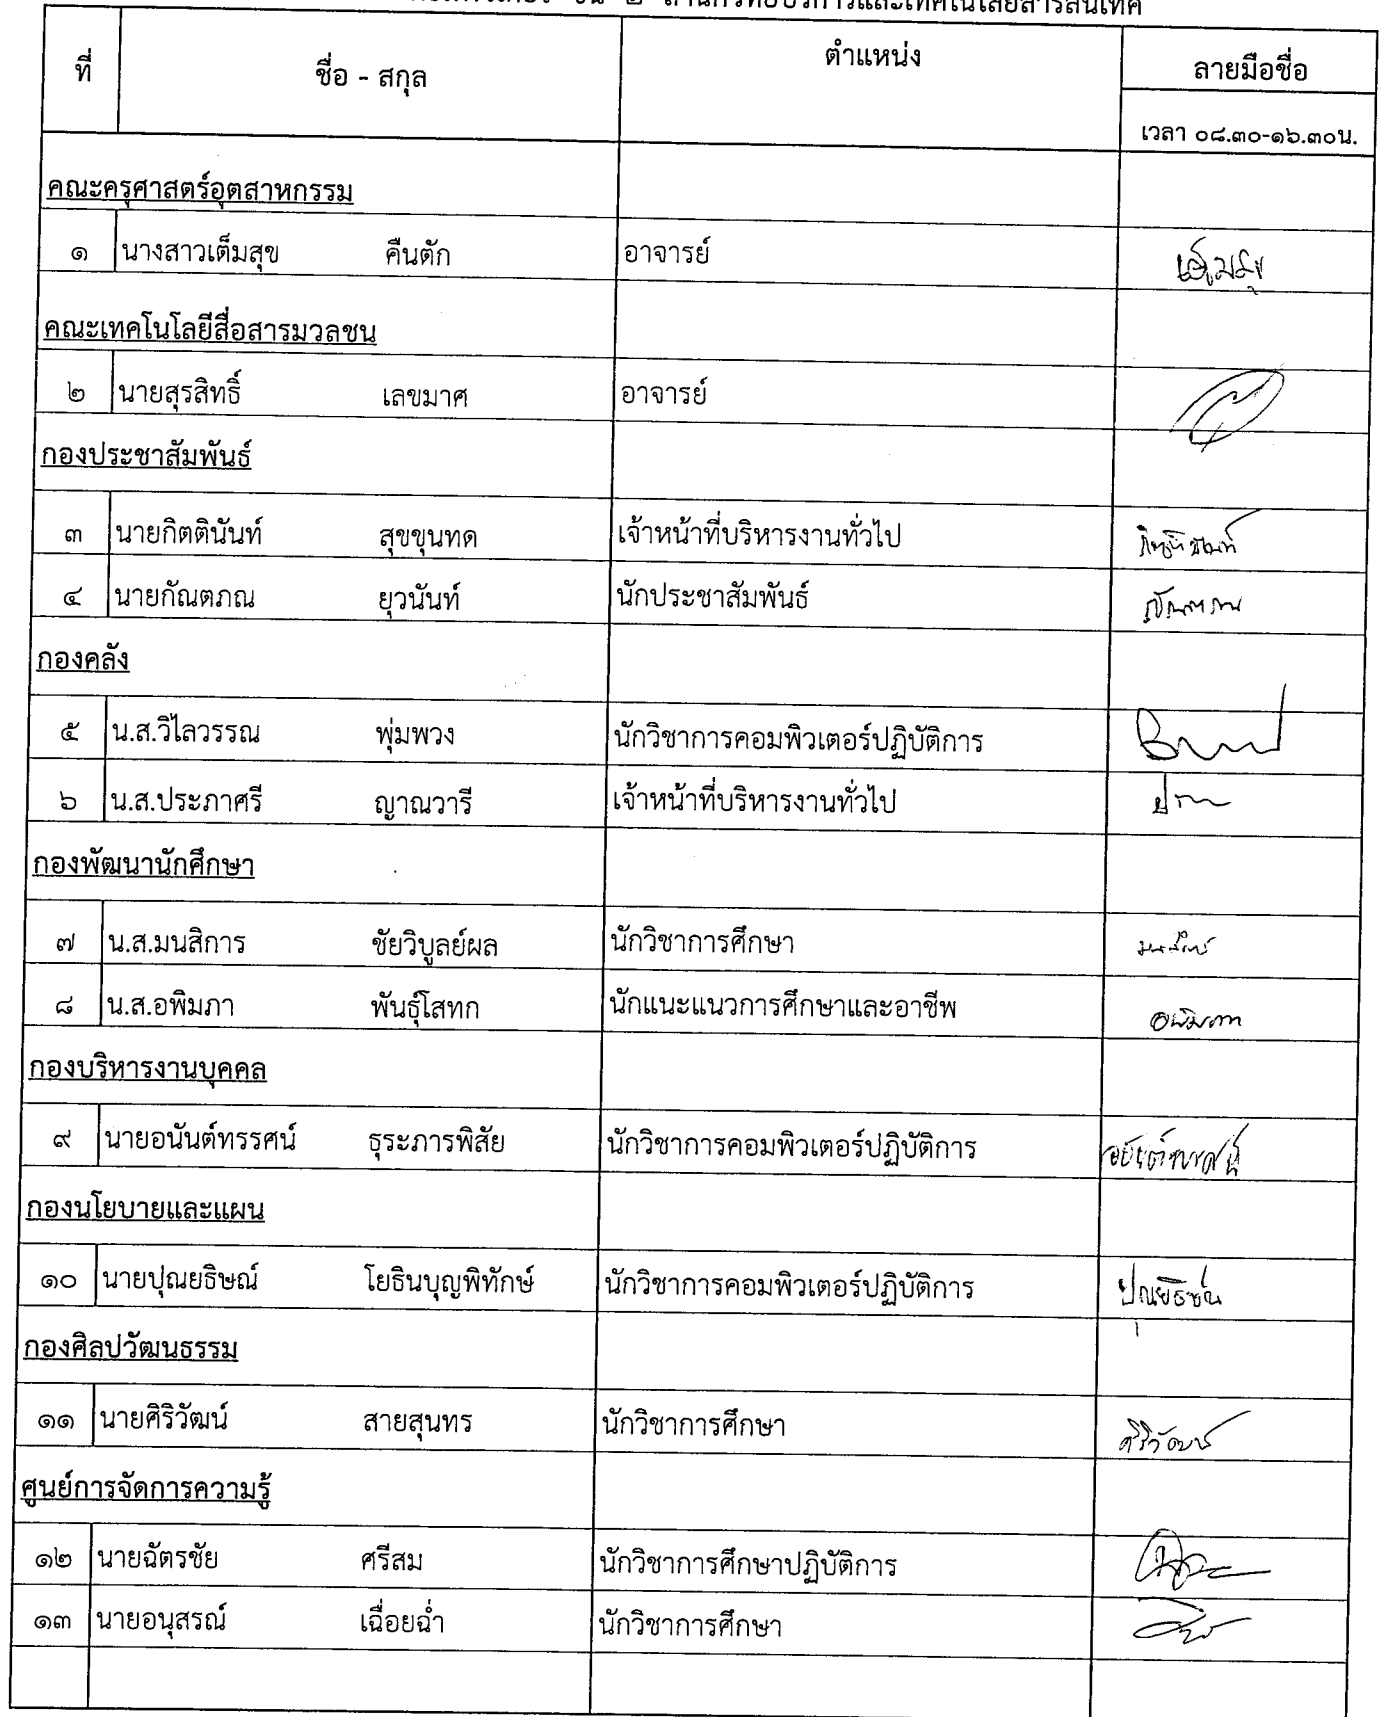 ชั้น ๒ สำนักวิทยบริการและเทคโนโลยีสารสนเทศ
ที่ ชื่อ - สกุล ตำแหน่ง ลายมือชื่อ
เวลา ๐๘.๓๐-๑๖.๓๐น.
คณะครุศาสตร์อุตสาหกรรม
๑ นางสาวเต็มสุข คืนตัก อาจารย์
คณะเทคโนโลยีสื่อสารมวลชน
๒ นายสุรสิทธิ์ เลขมาศ อาจารย์
กองประชาสัมพันธ์
๓ นายกิตตินันท์ สุขขุนทด เจ้าหน้าที่บริหารงานทั่วไป
๔ นายกัณตภณ ยุวนันท์ นักประชาสัมพันธ์
กองคลัง
๕ น.ส.วิไลวรรณ พุ่มพวง นักวิชาการคอมพิวเตอร์ปฏิบัติการ
๖ น.ส.ประภาศรี ญาณวารี เจ้าหน้าที่บริหารงานทั่วไป
กองพัฒนานักศึกษา
๗ น.ส.มนสิการ ชัยวิบูลย์ผล นักวิชาการศึกษา
๘ น.ส.อพิมภา พันธุ์โสทก นักแนะแนวการศึกษาและอาชีพ อพิมภา
กองบริหารงานบุคคล
๙ นายอนันต์ทรรศน์ ธุระภารพิสัย นักวิชาการคอมพิวเตอร์ปฏิบัติการ
กองนโยบายและแผน
๑๐ นายปุณยธิษณ์ โยธินบุญพิทักษ์ นักวิชาการคอมพิวเตอร์ปฏิบัติการ
กองศิลปวัฒนธรรม
๑๑ นายศิริวัฒน์ สายสุนทร นักวิชาการศึกษา ศิริวัฒน์
ศูนย์การจัดการความรู้
๑๒ นายฉัตรชัย ศรีสม นักวิชาการศึกษาปฏิบัติการ
๑๓ นายอนุสรณ์ เฉื่อยฉ่ำ นักวิชาการศึกษา